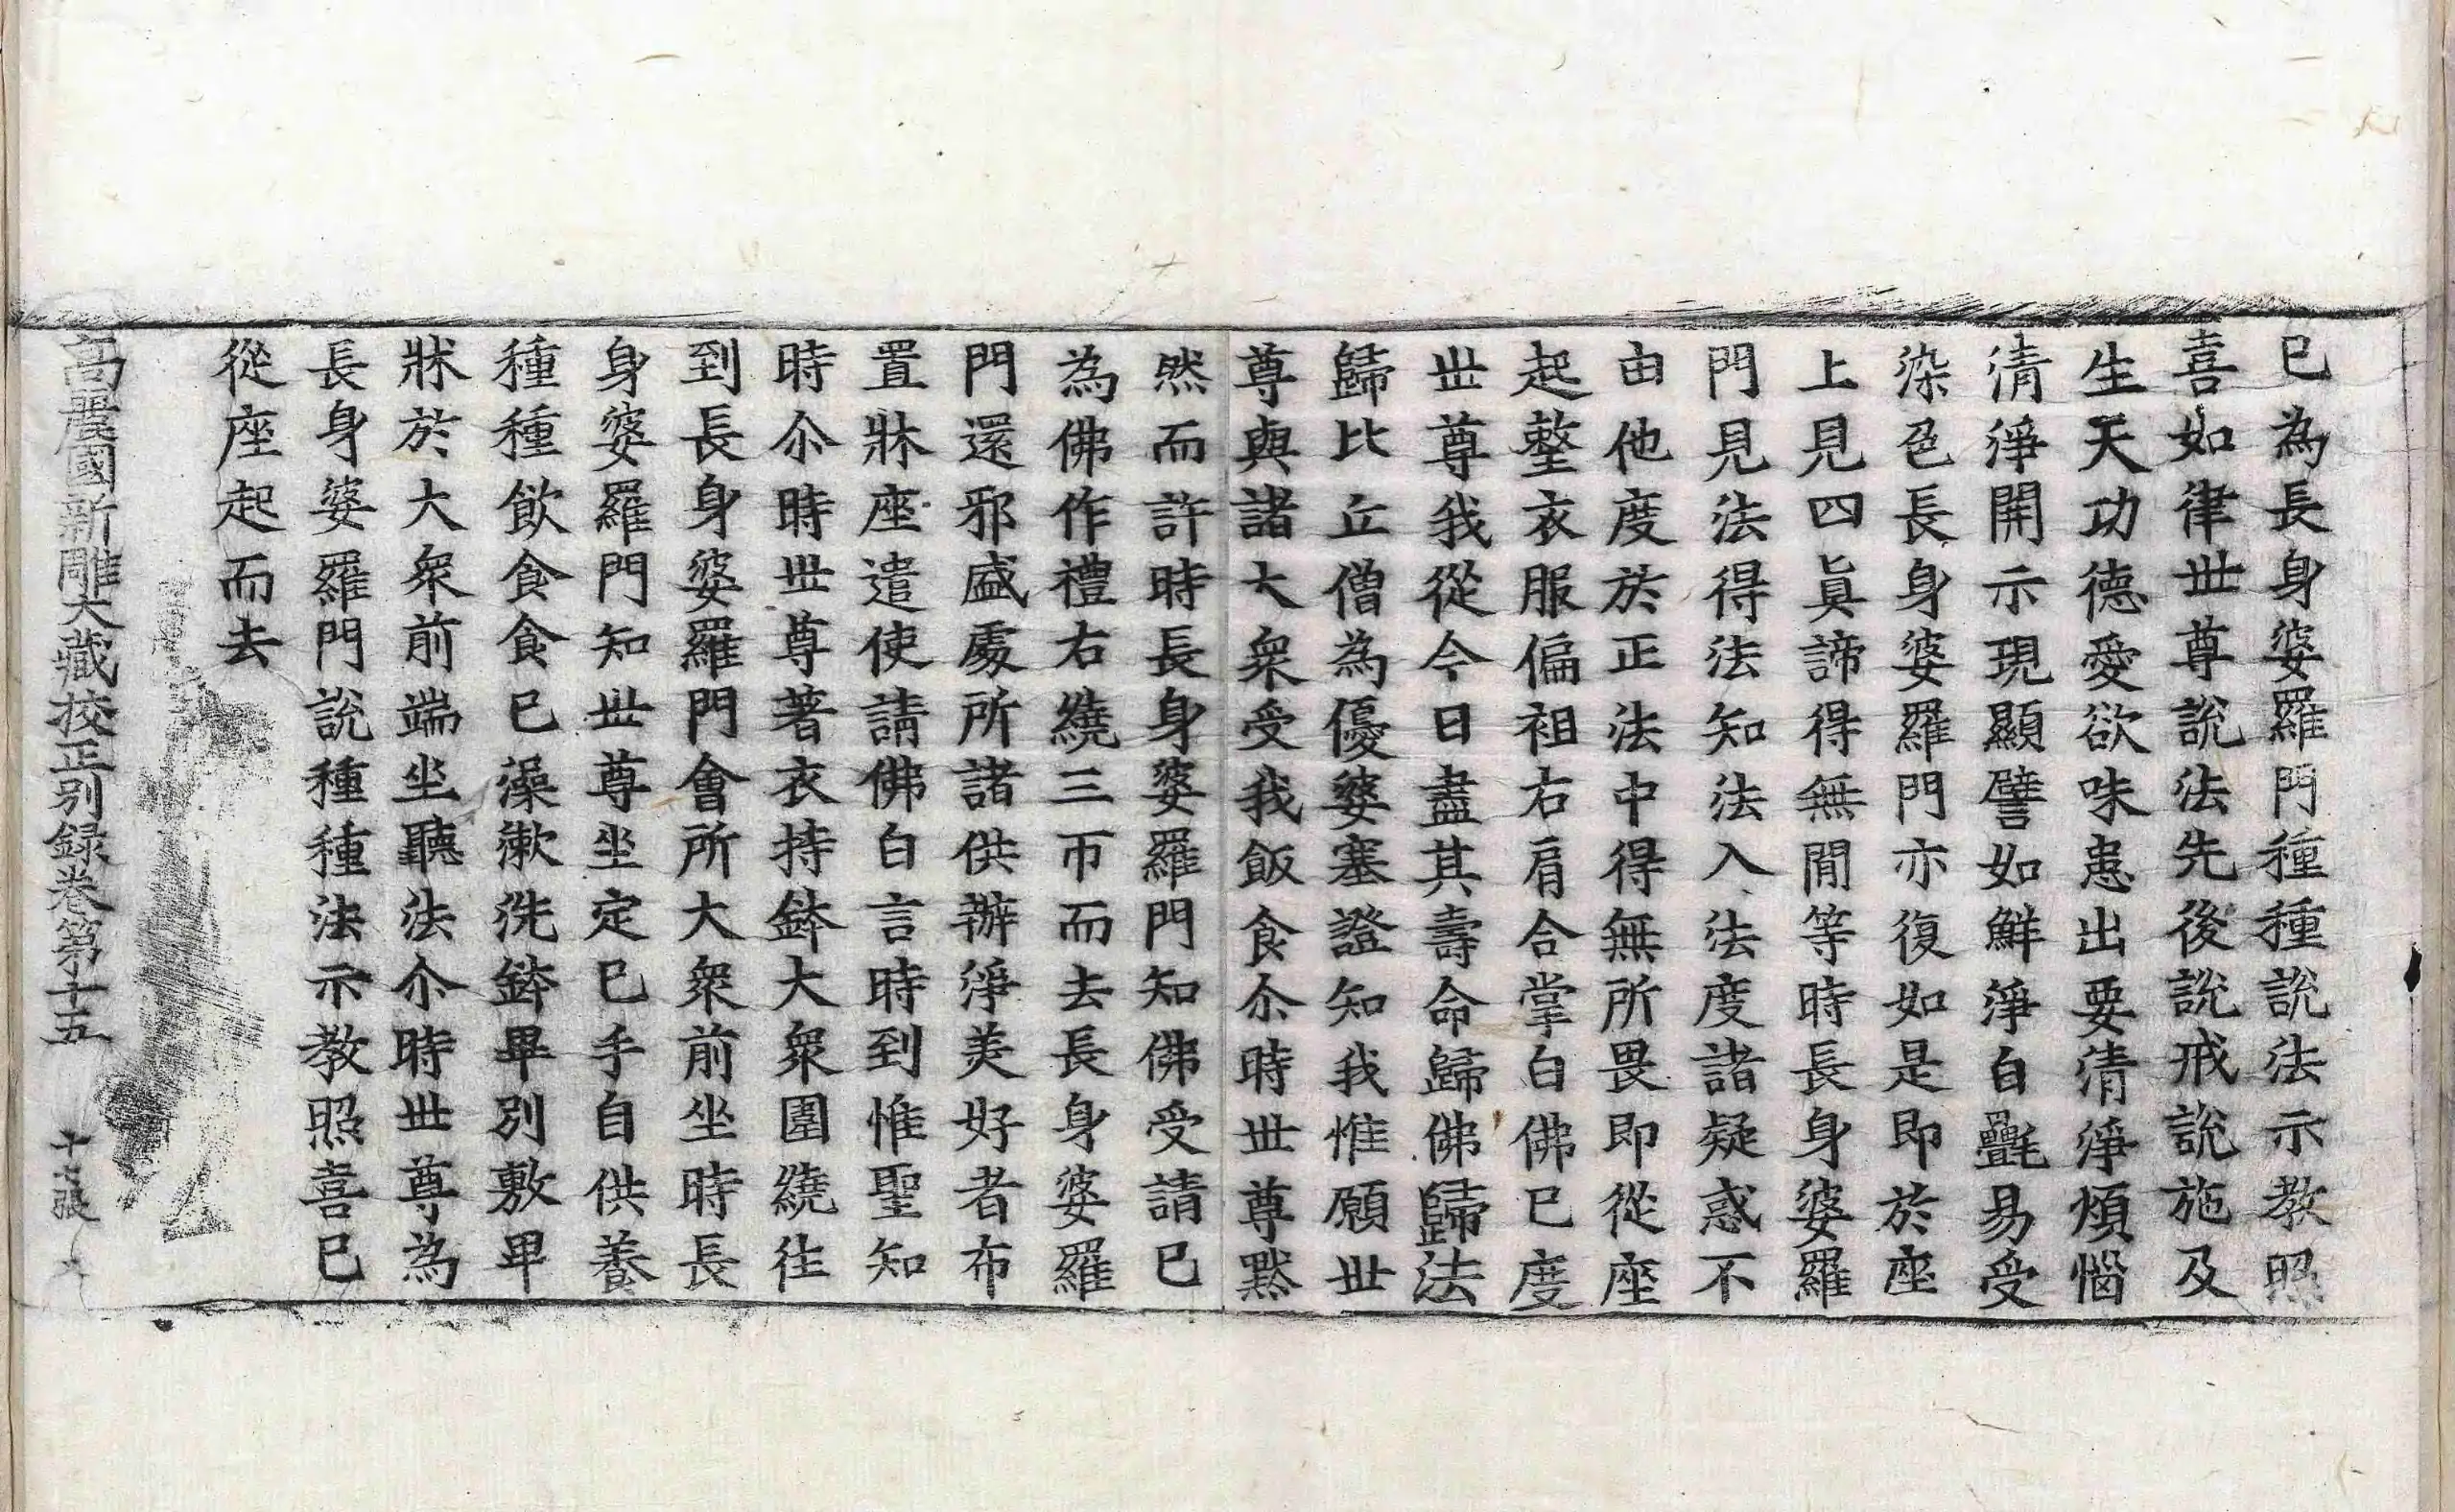 已為長身婆羅門種種說法示教照
喜如律世尊說法先後說戒說施及
生天功德愛欲味患出要清淨煩惱
清淨開示現顯譬如鮮淨白㲲易受
染色長身婆羅門亦復如是即於座
上見四眞諦得無閒等時長身婆羅
門見法得法知法入法度諸疑惑不
由他度於正法中得無所畏即從座
起整衣服偏袒右肩合掌白佛已度
世尊我從今日盡其壽命歸佛歸法
歸比丘僧為優婆塞證知我惟願世
尊與諸大衆受我飯食尒時世尊黙
然而許時長身婆羅門知佛受請已
為佛作禮右繞三帀而去長身婆羅
門還邪盛處所諸供辦淨美好者布
置牀座遣使請佛白言時到惟聖知
時尒時世尊著衣持鉢大衆圍繞往
到長身婆羅門會所大衆前坐時長
身婆羅門知世尊坐定已手自供養
種種飲食食已澡漱洗鉢畢別敷卑
牀於大衆前端坐聽法尒時世尊為
長身婆羅門說種種法示教照喜已
從座起而去
高麗國新雕大藏校正別録卷第十五 十七張